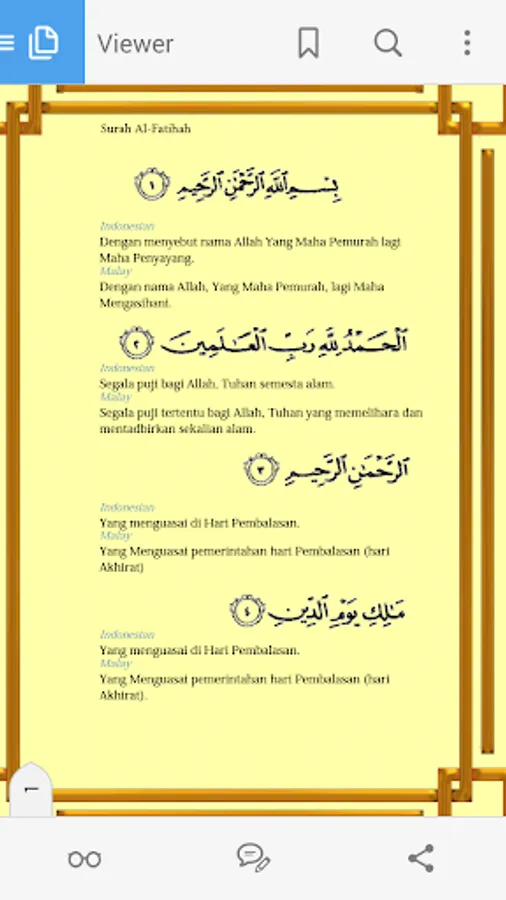 Viewer
Surah Al-Fatihah
بِسْمِ ٱللَّهِ ٱلرَّحْمَٰنِ ٱلرَّحِيمِ ١
Indonesian
Dengan menyebut nama Allah Yang Maha Pemurah lagi
Maha Penyayang.
Malay
Dengan nama Allah, Yang Maha Pemurah, lagi Maha
Mengasihani.
ٱلْحَمْدُ لِلَّهِ رَبِّ ٱلْعَٰلَمِينَ ٢
Indonesian
Segala puji bagi Allah, Tuhan semesta alam.
Malay
Segala puji tertentu bagi Allah, Tuhan yang memelihara dan
mentadbirkan sekalian alam.
ٱلرَّحْمَٰنِ ٱلرَّحِيمِ ٣
Indonesian
Yang menguasai di Hari Pembalasan.
Malay
Yang Menguasai pemerintahan hari Pembalasan (hari
Akhirat)
مَٰلِكِ يَوْمِ ٱلدِّينِ ٤
Indonesian
Yang menguasai di Hari Pembalasan.
Malay
Yang Menguasai pemerintahan hari Pembalasan (hari
Akhirat).
1